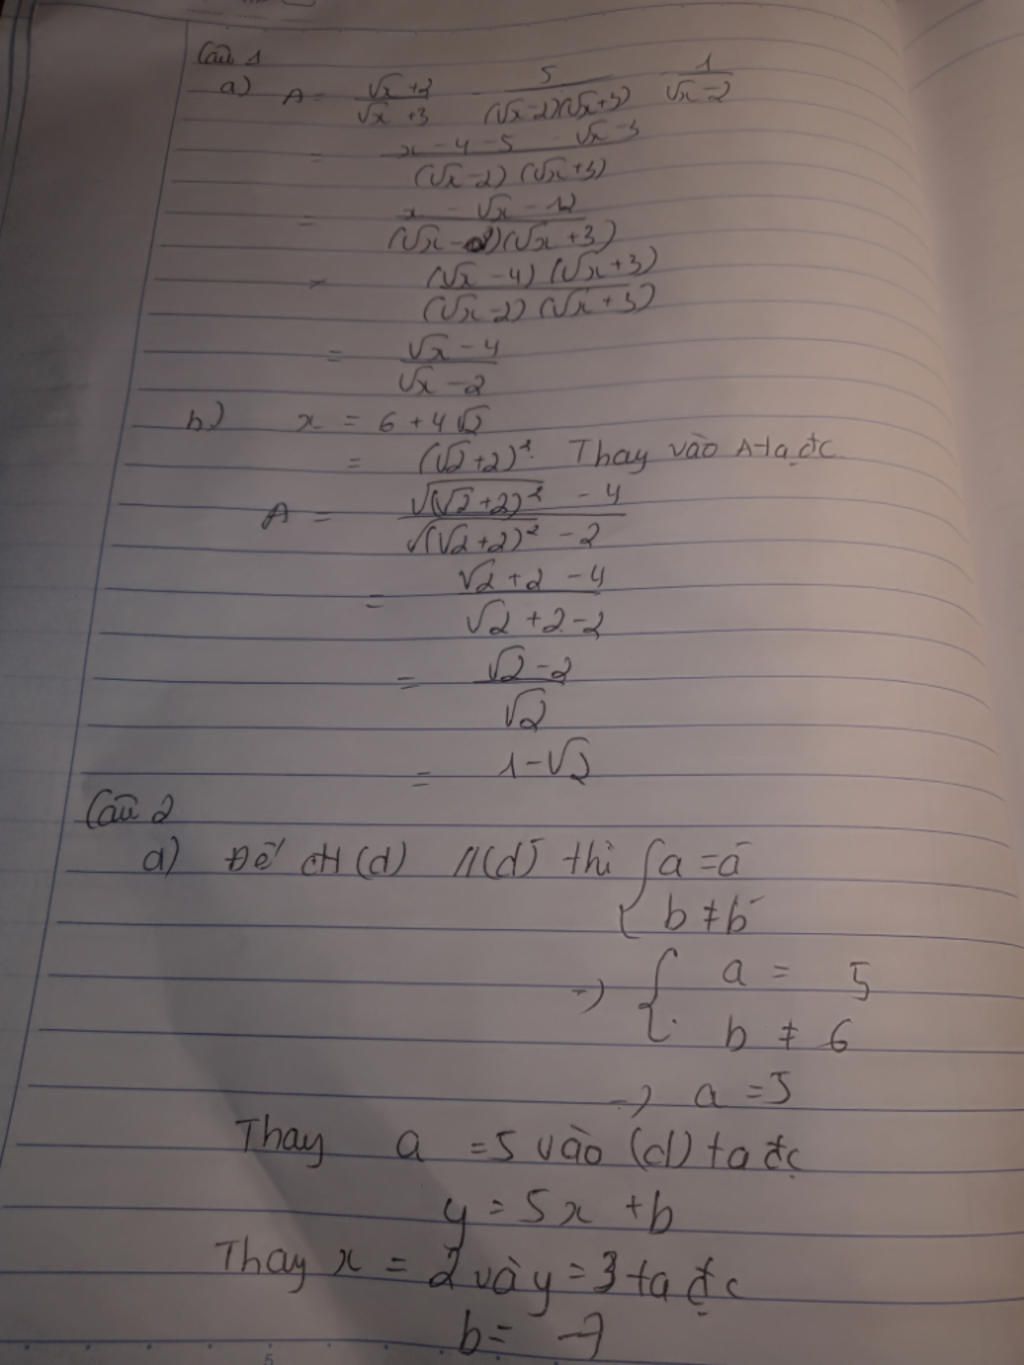 Câu 1
a) A = (√x + 2)/(√x + 3) - 5/((√x - 2)(√x + 3)) - 1/(√x - 2)
= (x - 4 - 5 - √x - 3)/((√x - 2)(√x + 3))
= (x - √x - 12)/((√x - 2)(√x + 3))
= ((√x - 4)(√x + 3))/((√x - 2)(√x + 3))
= (√x - 4)/(√x - 2)
b) x = 6 + 4√2
= (√2 + 2)². Thay vào A ta đc
A = (√(√2 + 2)² - 4)/(√(√2 + 2)² - 2)
= (√2 + 2 - 4)/(√2 + 2 - 2)
= (√2 - 2)/√2
= 1 - √2
Câu 2
a) Để đt (d) // (d') thì { a = a'
b ≠ b'
→ { a = 5
b ≠ 6
→ a = 5
Thay a = 5 vào (d) ta đc
y = 5x + b
Thay x = 2 và y = 3 ta đc
b = -7